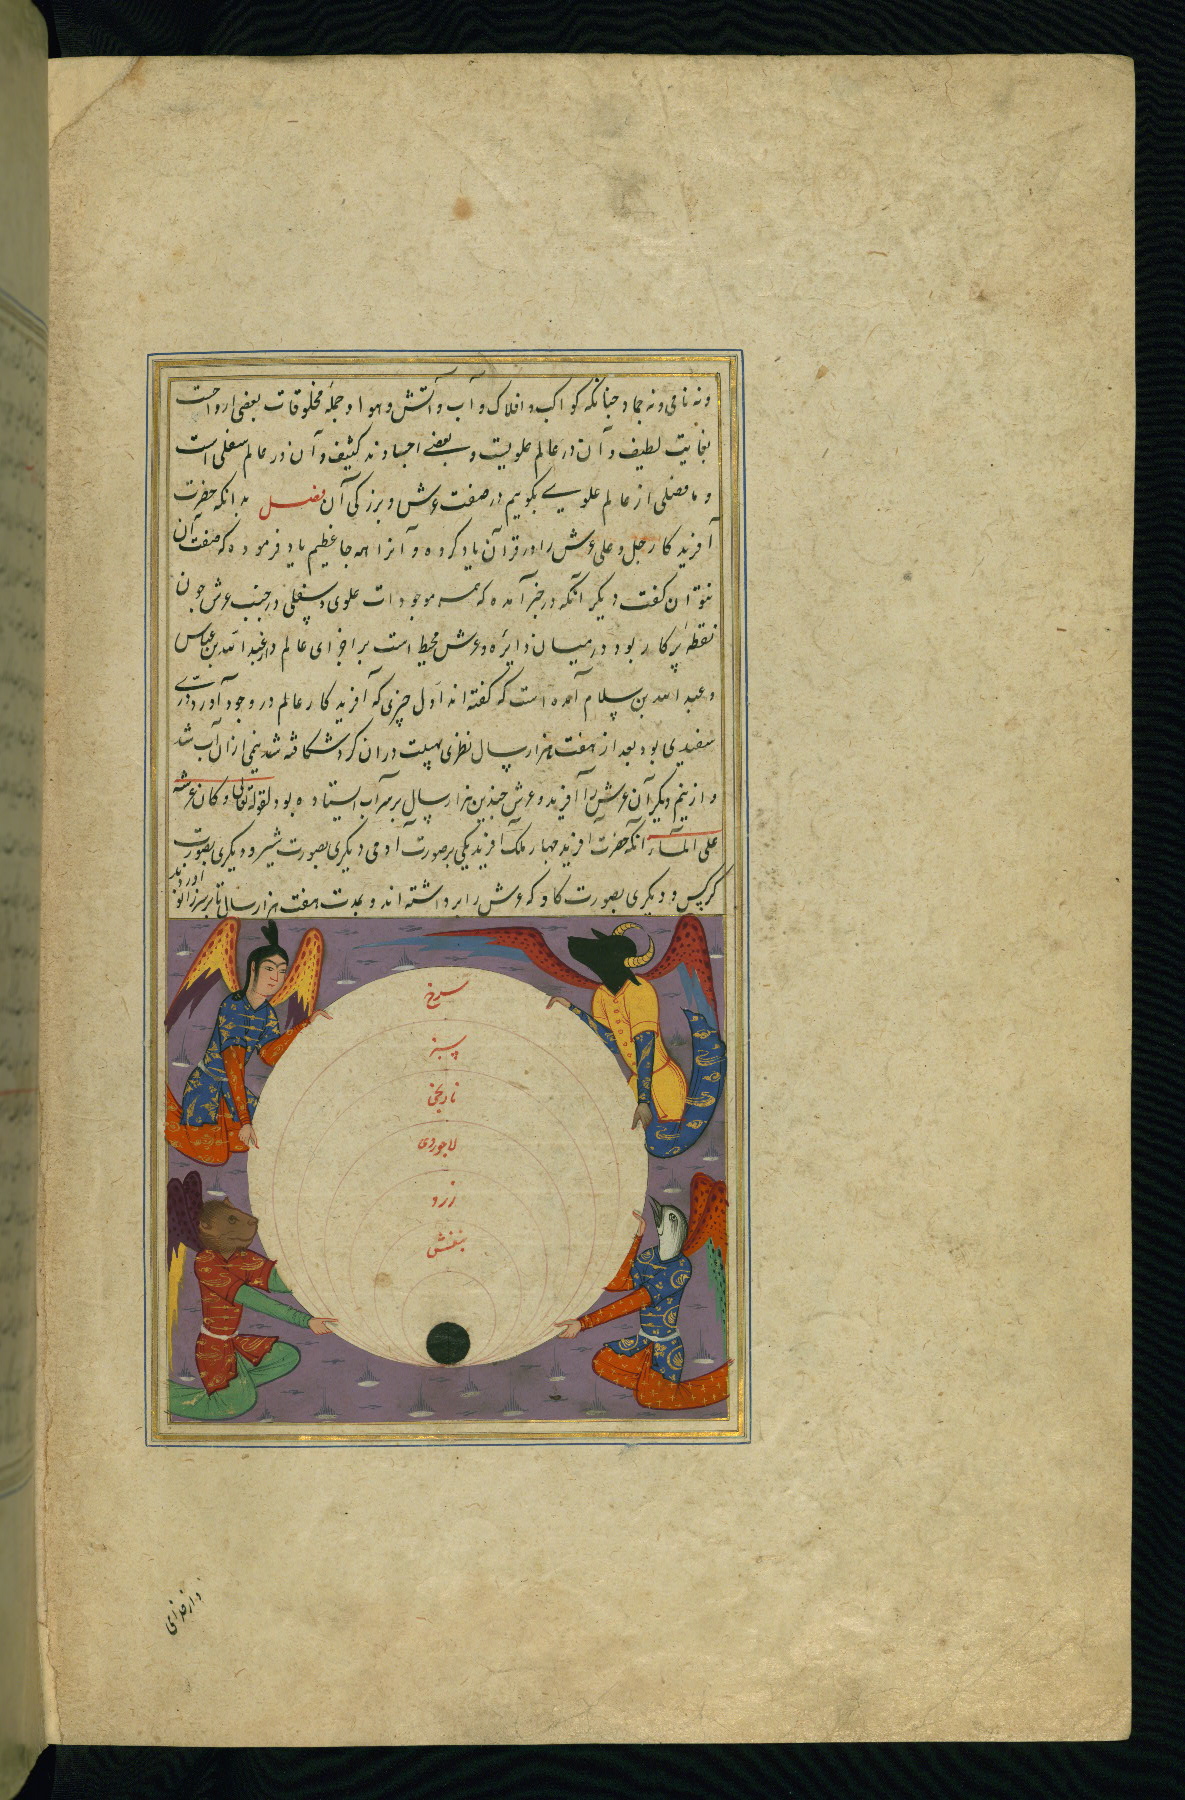 ونه نامی ونه جماد چنانکه کواکب و افلاک و آب و آتش و هوا و جمله مخلوقات بعضی ارواحست
بغایت لطیف و آن در عالم علویست و بعضی اجسادند کثیف و آن در عالم سفلی است
و ما فصلی از عالم علوی بگوییم در صفت عرش و بزرکی آن فصل بدانکه حضرت
آفریدکار جل و علی عرش را در قرآن یاد کرده و آنرا همه جا عظیم یاد فرموده که صفت آن
نتوان کفت دیکر آنکه در خبر آمده که همه موجودات علوی و سفلی در جنب عرش چون
نقطه پرکار بود در میان دایره و عرش محیط است بر اجزای عالم و از عبدالله بن عباس
و عبدالله بن سلام آمده است که کفته اند اول چیزی که آفریدکار عالم در وجود آورد دری
سفیدی بود بعد از هفت هزار سال نظری بهیبت دران کرد شکافته شد نیمی ازان آب شد
و از نیم دیکر آن عرش را آفرید و عرش چندین هزار سال بر سر آب ایستاده بود لقوله تعالی و کان عرشه
علی المآء آنکه حضرت آفرید چهار ملک آفرید یکی بر صورت آدمی دیکری بصورت شیر و دیکری بصورت
کرکس و دیکری بصورت کاو که عرش را برداشته اند و بمدت هفت هزار سال تا بر سر زانو آوردند
سرخ
سبز
نارنجی
لاجوردی
زرد
بنفش